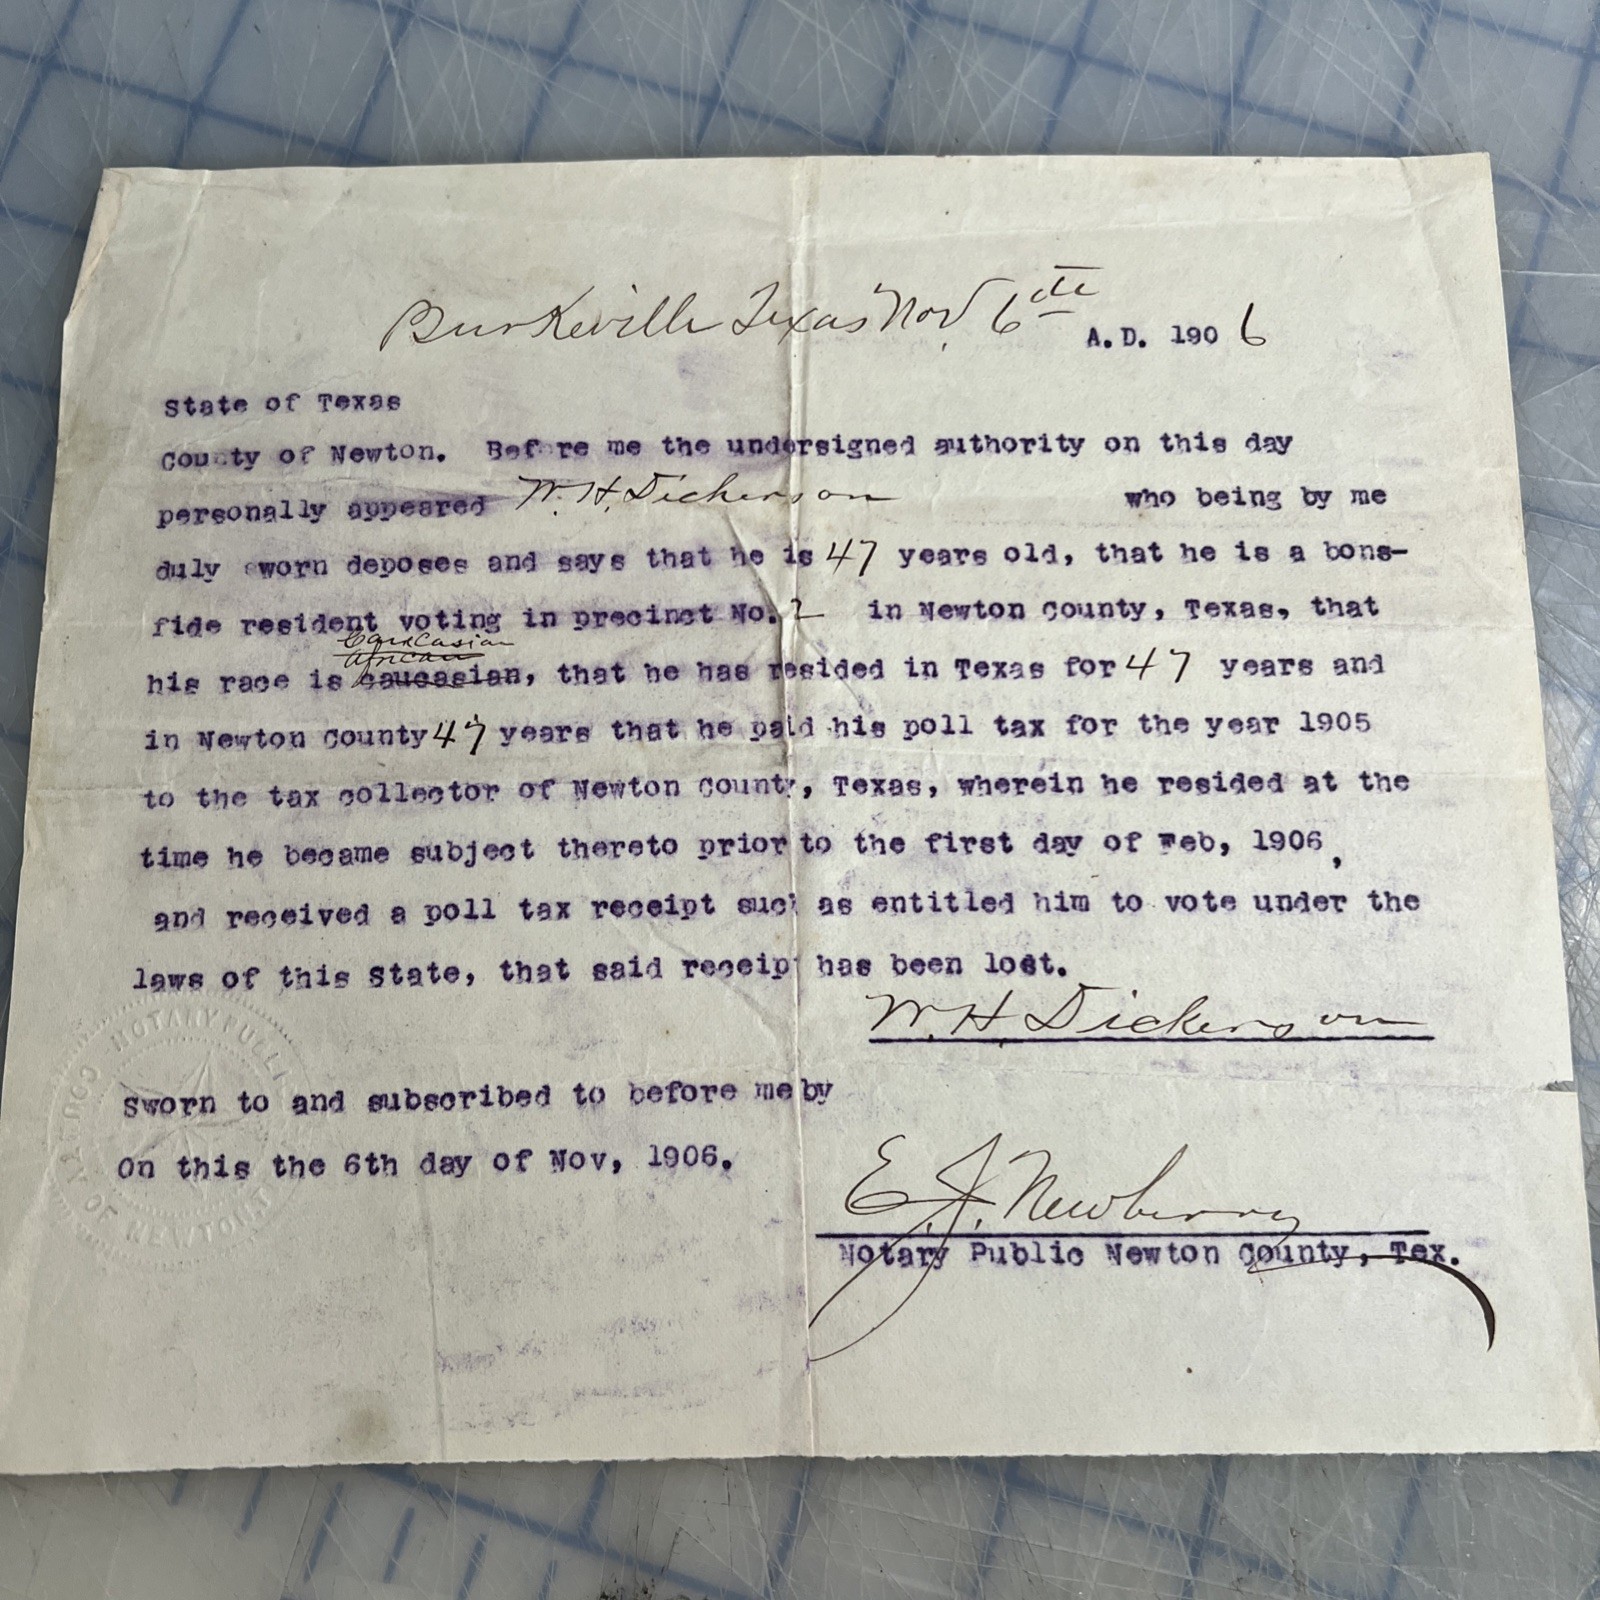 Burkeville Texas Nov. 6th A.D. 1906
State of Texas
County of Newton. Before me the undersigned authority on this day
personally appeared W. H. Dickerson who being by me
duly sworn deposes and says that he is 47 years old, that he is a bona-
fide resident voting in precinct No. 2 in Newton County, Texas, that
Caucasian
African
his race is caucasian, that he has resided in Texas for 47 years and
in Newton County 47 years that he paid his poll tax for the year 1905
to the tax collector of Newton County, Texas, wherein he resided at the
time he became subject thereto prior to the first day of Feb, 1906,
and received a poll tax receipt such as entitled him to vote under the
laws of this State, that said receipt has been lost.
W. H. Dickerson
Sworn to and subscribed to before me by
On this the 6th day of Nov, 1906.
E. J. Newberry
Notary Public Newton County, Tex.
NOTARY PUBLI
COUNTY OF NEWTON